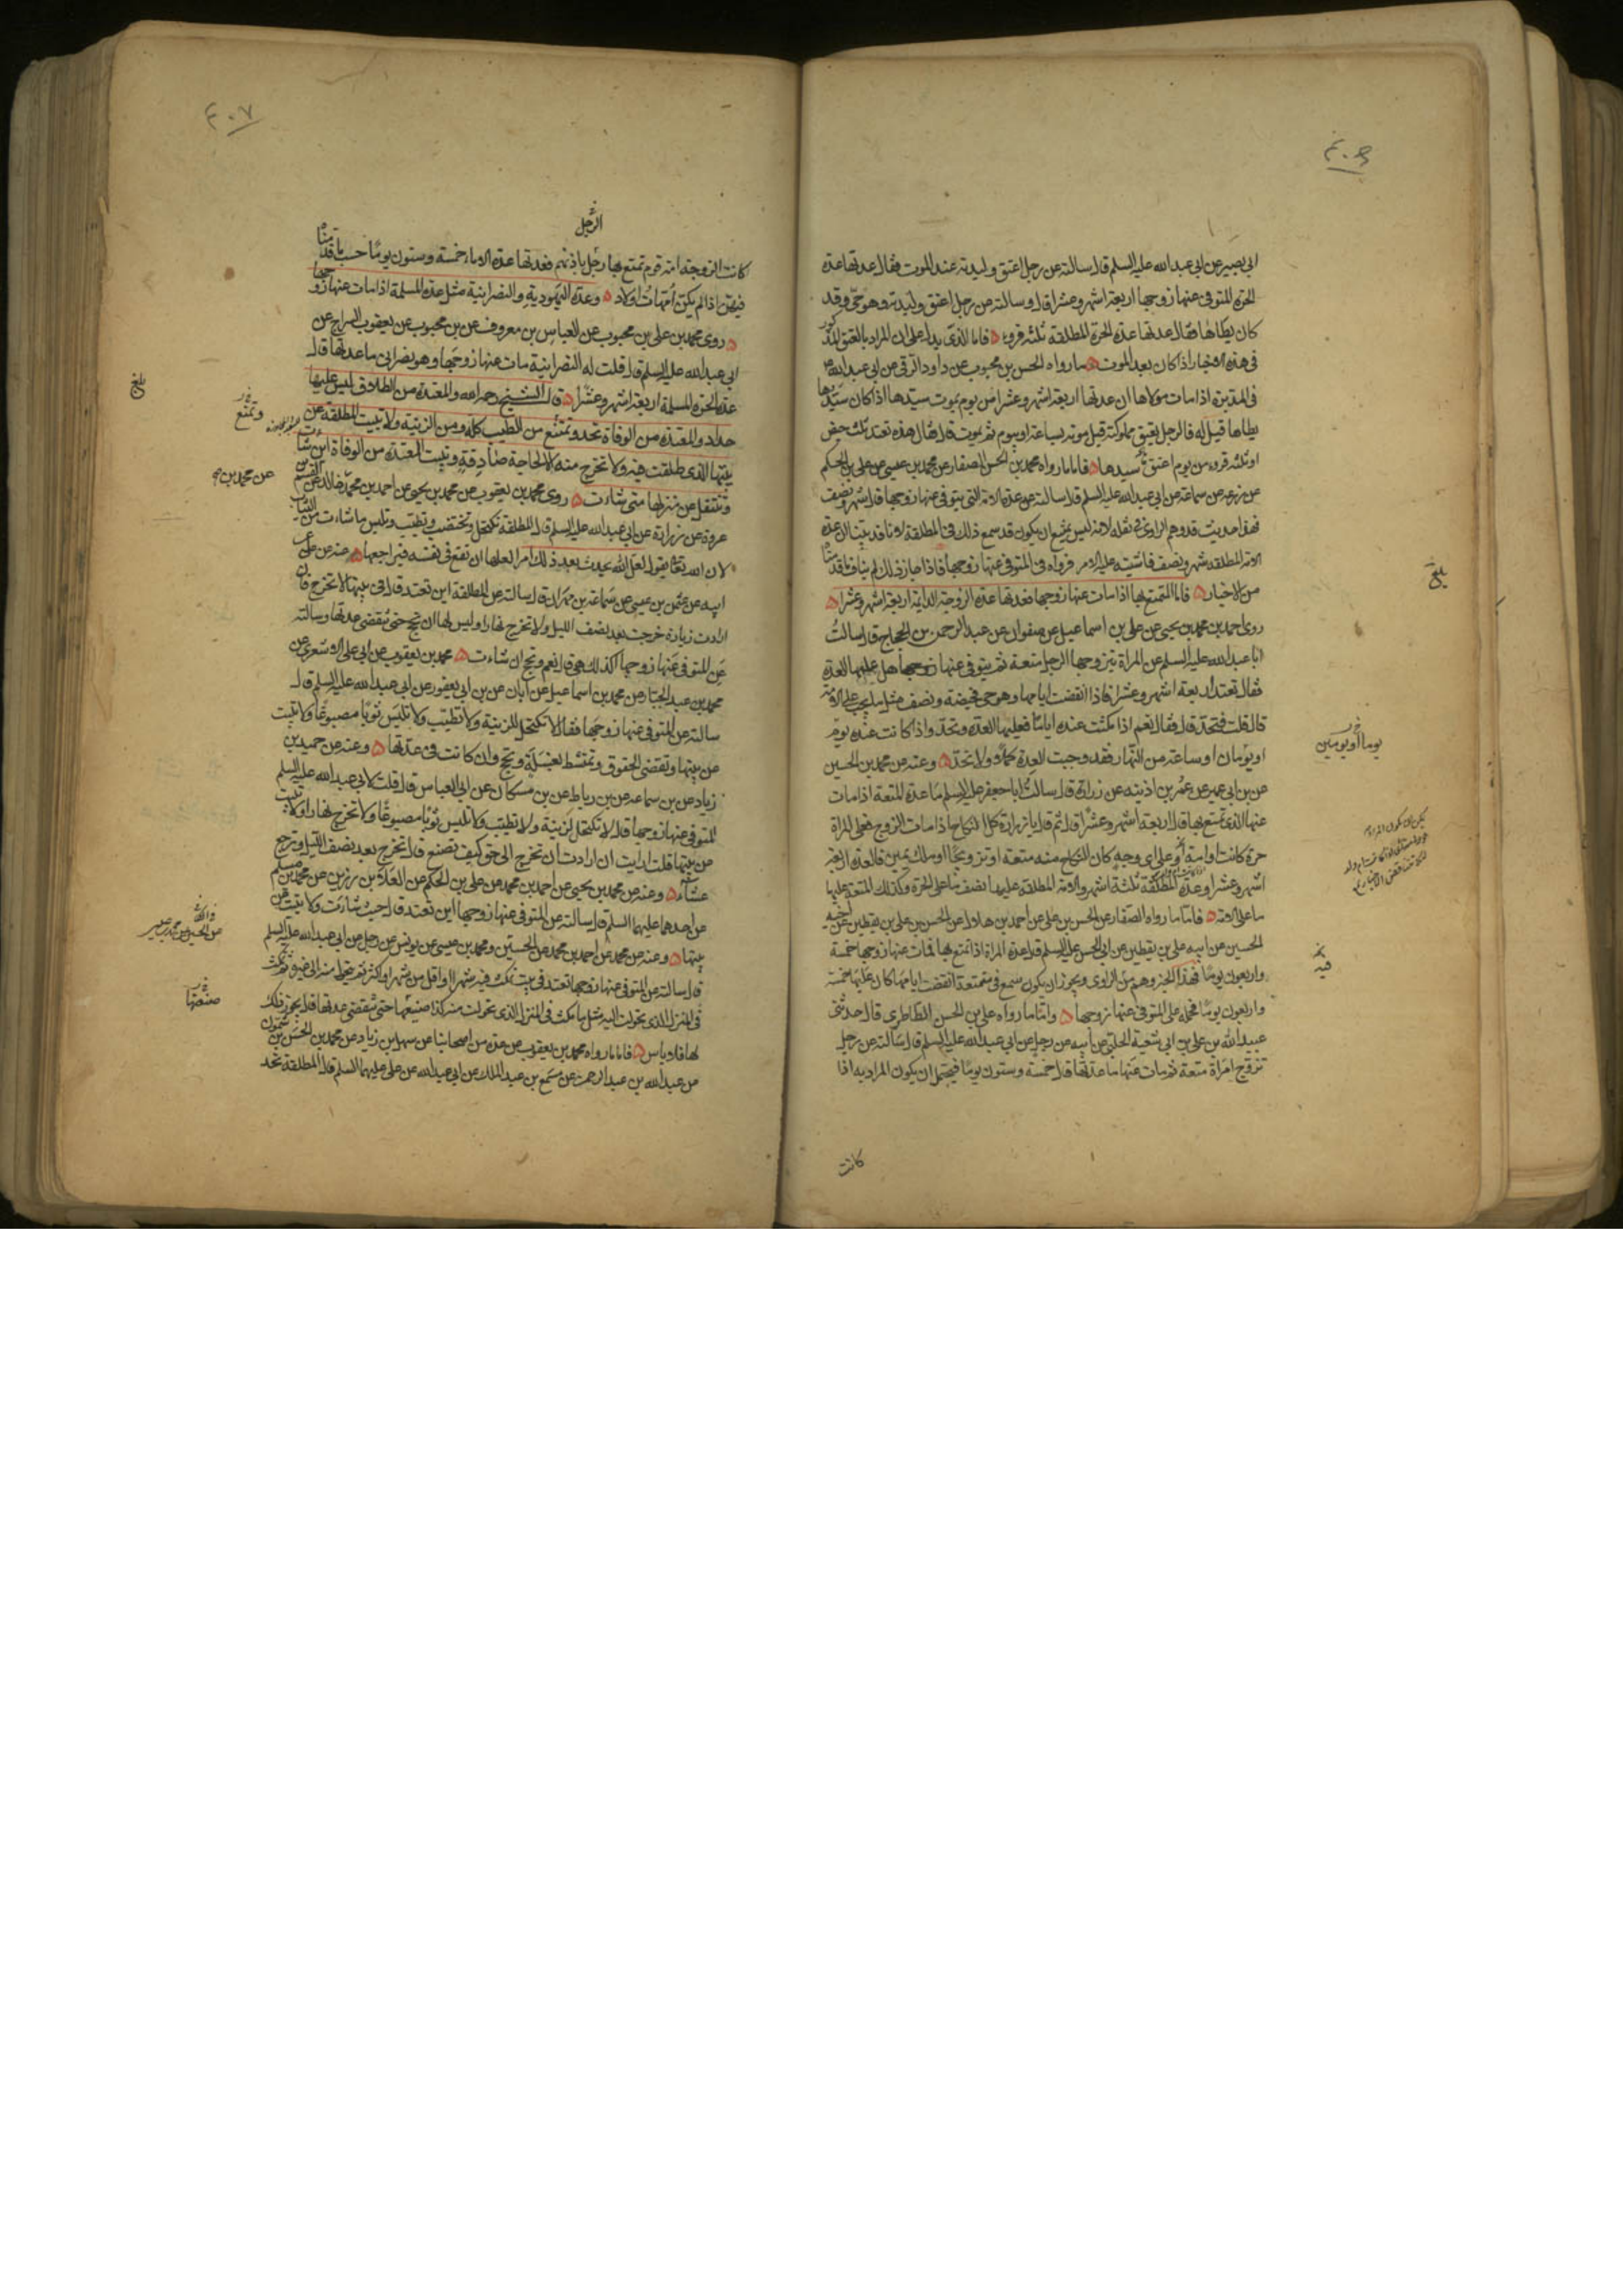 ابي بصير عن ابي عبد الله عليه السلم قال سالته عن رجل اعتق وليدته عند الموت فقال عدتها عدة
الحرة المتوفى عنها زوجها اربعة اشهر وعشرا قال وسالته عن رجل اعتق وليدته وهو حي وقد
كان يطاها فقال عدتها عدة الحرة المطلقة ثلثة قروء فاما الذي يدل على ان المراد بالعتق المذكور
في هذه الاخبار اذا كان بعد الموت ما رواه الحسن بن محبوب عن داود الرقي عن ابي عبد الله
في المدبرة اذا مات مولاها ان عدتها اربعة اشهر وعشرا من يوم يموت سيدها اذا كان سيدها
يطاها قيل له فالرجل يعتق مملوكته قبل موته بساعة او بيوم ثم يموت قال فقال هذه تعتد بثلث حيض
او ثلثة قروء من يوم اعتقها سيدها فاما ما رواه محمد بن الحسن الصفار عن محمد بن عيسى عن علي بن الحكم
عن زرعه عن سماعة عن ابي عبد الله عليه السلم قال سالته عن عدة الامة التي يتوفى عنها زوجها قال شهر ونصف
فهذا حديث قد وهم الراوي في نقله لانه ليس يمتنع ان يكون قد سمع ذلك في المطلقة لانا قد بينا ان عدة
الامة المطلقة شهر ونصف فاشتبه عليه الامر فرواه في المتوفى عنها زوجها فاذا جاز ذلك لم يناف ما قدمناه
من الاخبار فاما المتمتع بها اذا مات عنها زوجها فعدتها عدة الزوجة الدايمة اربعة اشهر وعشرا
روى احمد بن محمد بن يحيى عن علي بن اسماعيل عن صفوان عن عبد الرحمن بن الحجاج قال سالت
ابا عبد الله عليه السلم عن المراة يتزوجها الرجل متعة ثم يتوفى عنها زوجها هل عليها العدة
فقال تعتد اربعة اشهر وعشرا فاذا انقضت ايامها وهو حي فحيضة ونصف مثل ما يجب على الامة
قال قلت فتحد قال فقال نعم اذا مكثت عنده اياما فعليها العدة وتحد واذا كانت عنده يوم
او يومان او ساعة من النهار فقد وجبت العدة كملا ولا تحد وعنه عن محمد بن الحسين
عن بن ابي عمير عن عمر بن اذينه عن زرارة قال سالت ابا جعفر عليه السلم ما عدة المتعة اذا مات
عنها الذي تمتع بها قال اربعة اشهر وعشرا قال ثم قال يا زرارة كل النكاح اذا مات الزوج فعلى المراة
حرة كانت او امة او على اي وجه كان النكاح منه متعة او تزويجا او ملك يمين فالعدة اربعة
اشهر وعشرا وعدة المطلقة ثلثة اشهر والامة المطلقة عليها نصف ما على الحرة وكذلك المتعة عليها
ما على الامة فاما ما رواه الصفار عن الحسن بن علي عن احمد بن هلال عن الحسن بن علي بن يقطين عن اخيه
الحسين عن ابيه علي بن يقطين عن ابي الحسن عليه السلم قال عدة المراة اذا تمتع بها فمات عنها زوجها خمسة
واربعون يوما فهذا الخبر وهم من الراوي ويجوز ان يكون سمع في متمتعة انقضت ايامها كان عليها خمسة
واربعون يوما فحمله على المتوفى عنها زوجها واما ما رواه علي بن الحسن الطاطري قال حدثني
عبيد الله بن علي بن ابي شعبة الحلبي عن ابيه عن رجل عن ابي عبد الله عليه السلم قال سالته عن رجل
تزوج امراة متعة ثم مات عنها ما عدتها قال خمسة وستون يوما فيحتمل ان يكون المراد به اذا
كانت
يوما او يومين
بلغ
فيه
٤٠٧
الرجل
كانت الزوجة امة قوم تمتع بها رجل باذنهم فعدتها عدة الاماء خمسة وستون يوما حسب ما قدمناه
فيهن اذا لم يكن امهات اولاد وعدة اليهودية والنصرانية مثل عدة المسلمة اذا مات عنها زوجها
روى محمد بن علي بن محبوب عن العباس بن معروف عن بن محبوب عن يعقوب السراج عن
ابي عبد الله عليه السلم قال قلت له النصرانية مات عنها زوجها وهو نصراني ما عدتها قال
عدة الحرة المسلمة اربعة اشهر وعشرا قال الشيخ رحمه الله والمعتدة من الطلاق ليس عليها
حداد والمعتدة من الوفاة تحد وتمتنع من الطيب كله ومن الزينة ولا تبيت المطلقة عن
بيتها الذي طلقت فيه ولا تخرج منه الا لحاجة صادقة وتبيت المعتدة من الوفاة اين شاءت
وتنتقل عن منزلها متى شاءت روى محمد بن يعقوب عن محمد بن يحيى عن احمد بن محمد بن خالد عن القسم
عروة عن زرارة عن ابي عبد الله عليه السلم قال المطلقة تكتحل وتختضب وتطيب وتلبس ما شاءت من الثياب
لان الله تعالى يقول لعل الله يحدث بعد ذلك امرا لعلها ان تقع في نفسه فيراجعها عنه عن علي عن
ابيه عن عثمن بن عيسى عن سماعة بن مهران قال سالته عن المطلقة اين تعتد قال في بيتها لا تخرج فان
ارادت زيارة خرجت بعد نصف الليل ولا تخرج نهارا وليس لها ان تحج حتى تنقضي عدتها وسالته
عن المتوفى عنها زوجها اكذلك هي قال نعم وتحج ان شاءت محمد بن يعقوب عن ابي علي الاشعري عن
محمد بن عبد الجبار عن محمد بن اسماعيل عن ابان عن بن ابي يعفور عن ابي عبد الله عليه السلم قال
سالته عن المتوفى عنها زوجها فقال لا تكتحل للزينة ولا تطيب ولا تلبس ثوبا مصبوغا ولا تبيت
عن بيتها وتقضي الحقوق وتمتشط بغسلة وتحج وان كانت في عدتها وعنه عن حميد بن
زياد عن بن سماعه عن بن رباط عن بن مسكان عن ابي العباس قال قلت لابي عبد الله عليه السلم
المتوفى عنها زوجها قال لا تكتحل لزينة ولا تطيب ولا تلبس ثوبا مصبوغا ولا تخرج نهارا ولا تبيت
عن بيتها قلت ارايت ان ارادت ان تخرج الى حق كيف تصنع قال تخرج بعد نصف الليل وترجع
عشاء وعنه عن محمد بن يحيى عن احمد بن محمد عن علي بن الحكم عن العلاء بن رزين عن محمد بن مسلم
عن احدهما عليهما السلم قال سالته عن المتوفى عنها زوجها اين تعتد قال حيث شاءت ولا تبيت عن
بيتها وعنه عن محمد عن احمد بن محمد عن الحسين ومحمد بن عيسى عن يونس عن رجل عن ابي عبد الله عليه السلم
قال سالته عن المتوفى عنها زوجها تعتد في بيت تمكث فيه شهرا او اقل من شهر او اكثر ثم تتحول منه الى غيره ثم تمكث
في المنزل الذي تحولت اليه مثل ما مكثت في المنزل الذي تحولت منه كذا صنيعها حتى تنقضي عدتها قال يجوز ذلك
لها فلا باس فاما ما رواه محمد بن يعقوب عن عدة من اصحابنا عن سهل بن زياد عن محمد بن الحسن بن شمون
عن عبد الله بن عبد الرحمن عن مسمع بن عبد الملك عن ابي عبد الله عن علي عليهما السلم قال المطلقة تحد
بلغ
وتمتنع
عن محمد بن
صنعتها